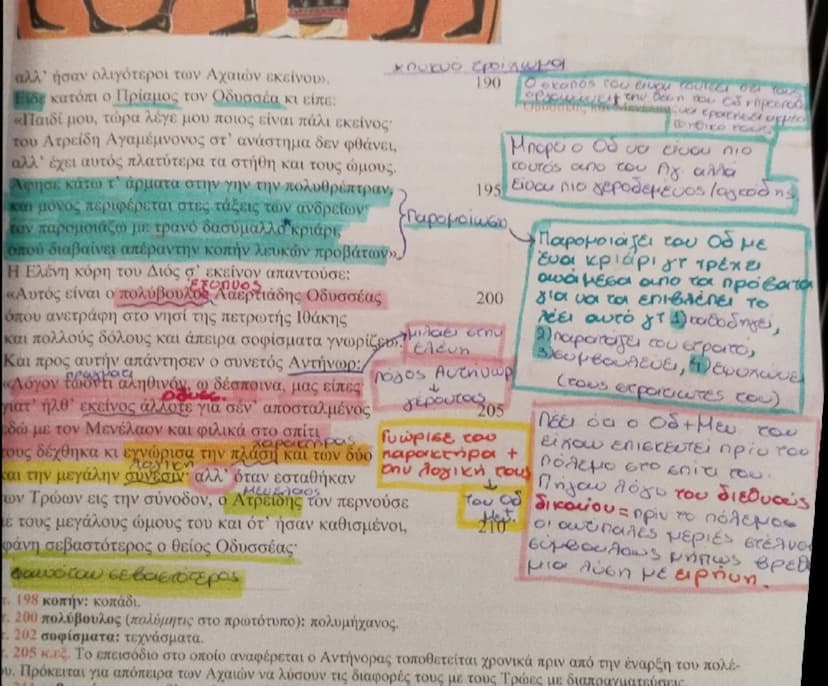 αλλ' ήσαν ολιγότεροι των Αχαιών εκείνοι».
Είδε κατόπι ο Πρίαμος τον Οδυσσέα κι είπε:
«Παιδί μου, τώρα λέγε μου ποιος είναι πάλι εκείνος·
του Ατρείδη Αγαμέμνονος στ' ανάστημα δεν φθάνει,
αλλ' έχει αυτός πλατύτερα τα στήθη και τους ώμους.
Άφησε κάτω τ' άρματα στην γην την πολυθρέπτραν,
και μόνος περιφέρεται στες τάξεις των ανδρείων·
τον παρομοιάζω με τρανό δασύμαλλο κριάρι,
οπού διαβαίνει απέραντην κοπήν λευκών προβάτων».
Η Ελένη κόρη του Διός σ' εκείνον απαντούσε:
έξυπνος
«Αυτός είναι ο πολύβουλος Λαερτιάδης Οδυσσέας
όπου ανετράφη στο νησί της πετρωτής Ιθάκης
και πολλούς δόλους και άπειρα σοφίσματα γνωρίζει».
Και προς αυτήν απάντησεν ο συνετός Αντήνωρ:
πράγματι
«Λόγον τωόντι αληθινόν, ω δέσποινα, μας είπες
Οδυσ.
γιατ' ήλθ' εκείνος άλλοτε για σέν' αποσταλμένος
εδώ με τον Μενέλαον και φιλικά στο σπίτι
χαρακτήρας
τους δέχθηκα κι εγνώρισα την πλάση και των δύο
λογική
και την μεγάλην σύνεσιν· αλλ' όταν εσταθήκαν
Μενέλαος
των Τρώων εις την σύνοδον, ο Ατρείδης τον περνούσε
ε τους μεγάλους ώμους του και ότ' ήσαν καθισμένοι,
φάνη σεβαστότερος ο θείος Οδυσσέας·
φαινόταν σεβαστότερος
190
195
200
205
210
Μπορεί ο Οδ να είναι πιο
κοντός από τον Αγ αλλά
είναι πιο γεροδεμένος/
Παρομοίωση
Παρομοιάζει τον Οδ με
ένα κριάρι γτ τρέχει
ανάμεσα από τα πρόβατα
για να τα επιβλέπει το
λέει αυτό γτ 1) καθοδηγεί,
2) παρατάζει τον στρατό,
3) συμβουλεύει, 4) εμψυχώνει
(τους στρατιώτες του)
μιλάει στην
Ελένη
λόγος Αντήνωρ
↓
γέροντας
Γνώρισε τον
χαρακτήρα +
την λογική τους
↓
του Οδ
Μεν.
Λέει ότι ο Οδ+Μεν τον
είχαν επισκευτεί πριν τον
πόλεμο στο σπίτι του.
Πήγαν λόγω του διεθνούς
δικαίου = πριν το πόλεμο
οι αντίπαλες μεριές στέλνα
σύμβουλους μήπως βρεθ
μια λύση με ειρήνη.
τ. 198 κοπήν: κοπάδι.
τ. 200 πολύβουλος (πολύμητις στο πρωτότυπο): πολυμήχανος.
τ. 202 σοφίσματα: τεχνάσματα.
τ. 205 κ.εξ. Το επεισόδιο στο οποίο αναφέρεται ο Αντήνορας τοποθετείται χρονικά πριν από την έναρξη του πολέ-
ου. Πρόκειται για απόπειρα των Αχαιών να λύσουν τις διαφορές τους με τους Τρώες με διαπραγματεύσεις.